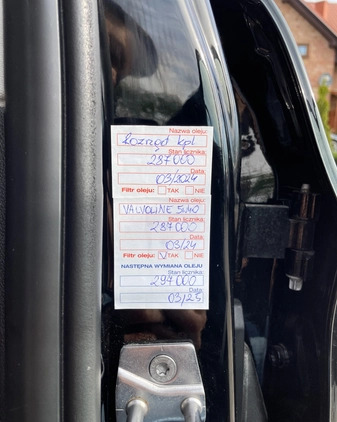 Nazwa oleju
Rozrząd kpl
Stan licznika:
287000
Data:
03/2024
Filtr oleju: TAK NIE
Nazwa oleju:
VALVOLINE 5W40
Stan licznika:
287000
Data:
03/24
Filtr oleju: TAK NIE
NASTĘPNA WYMIANA OLEJU
Stan licznika:
297000
Data:
03/25